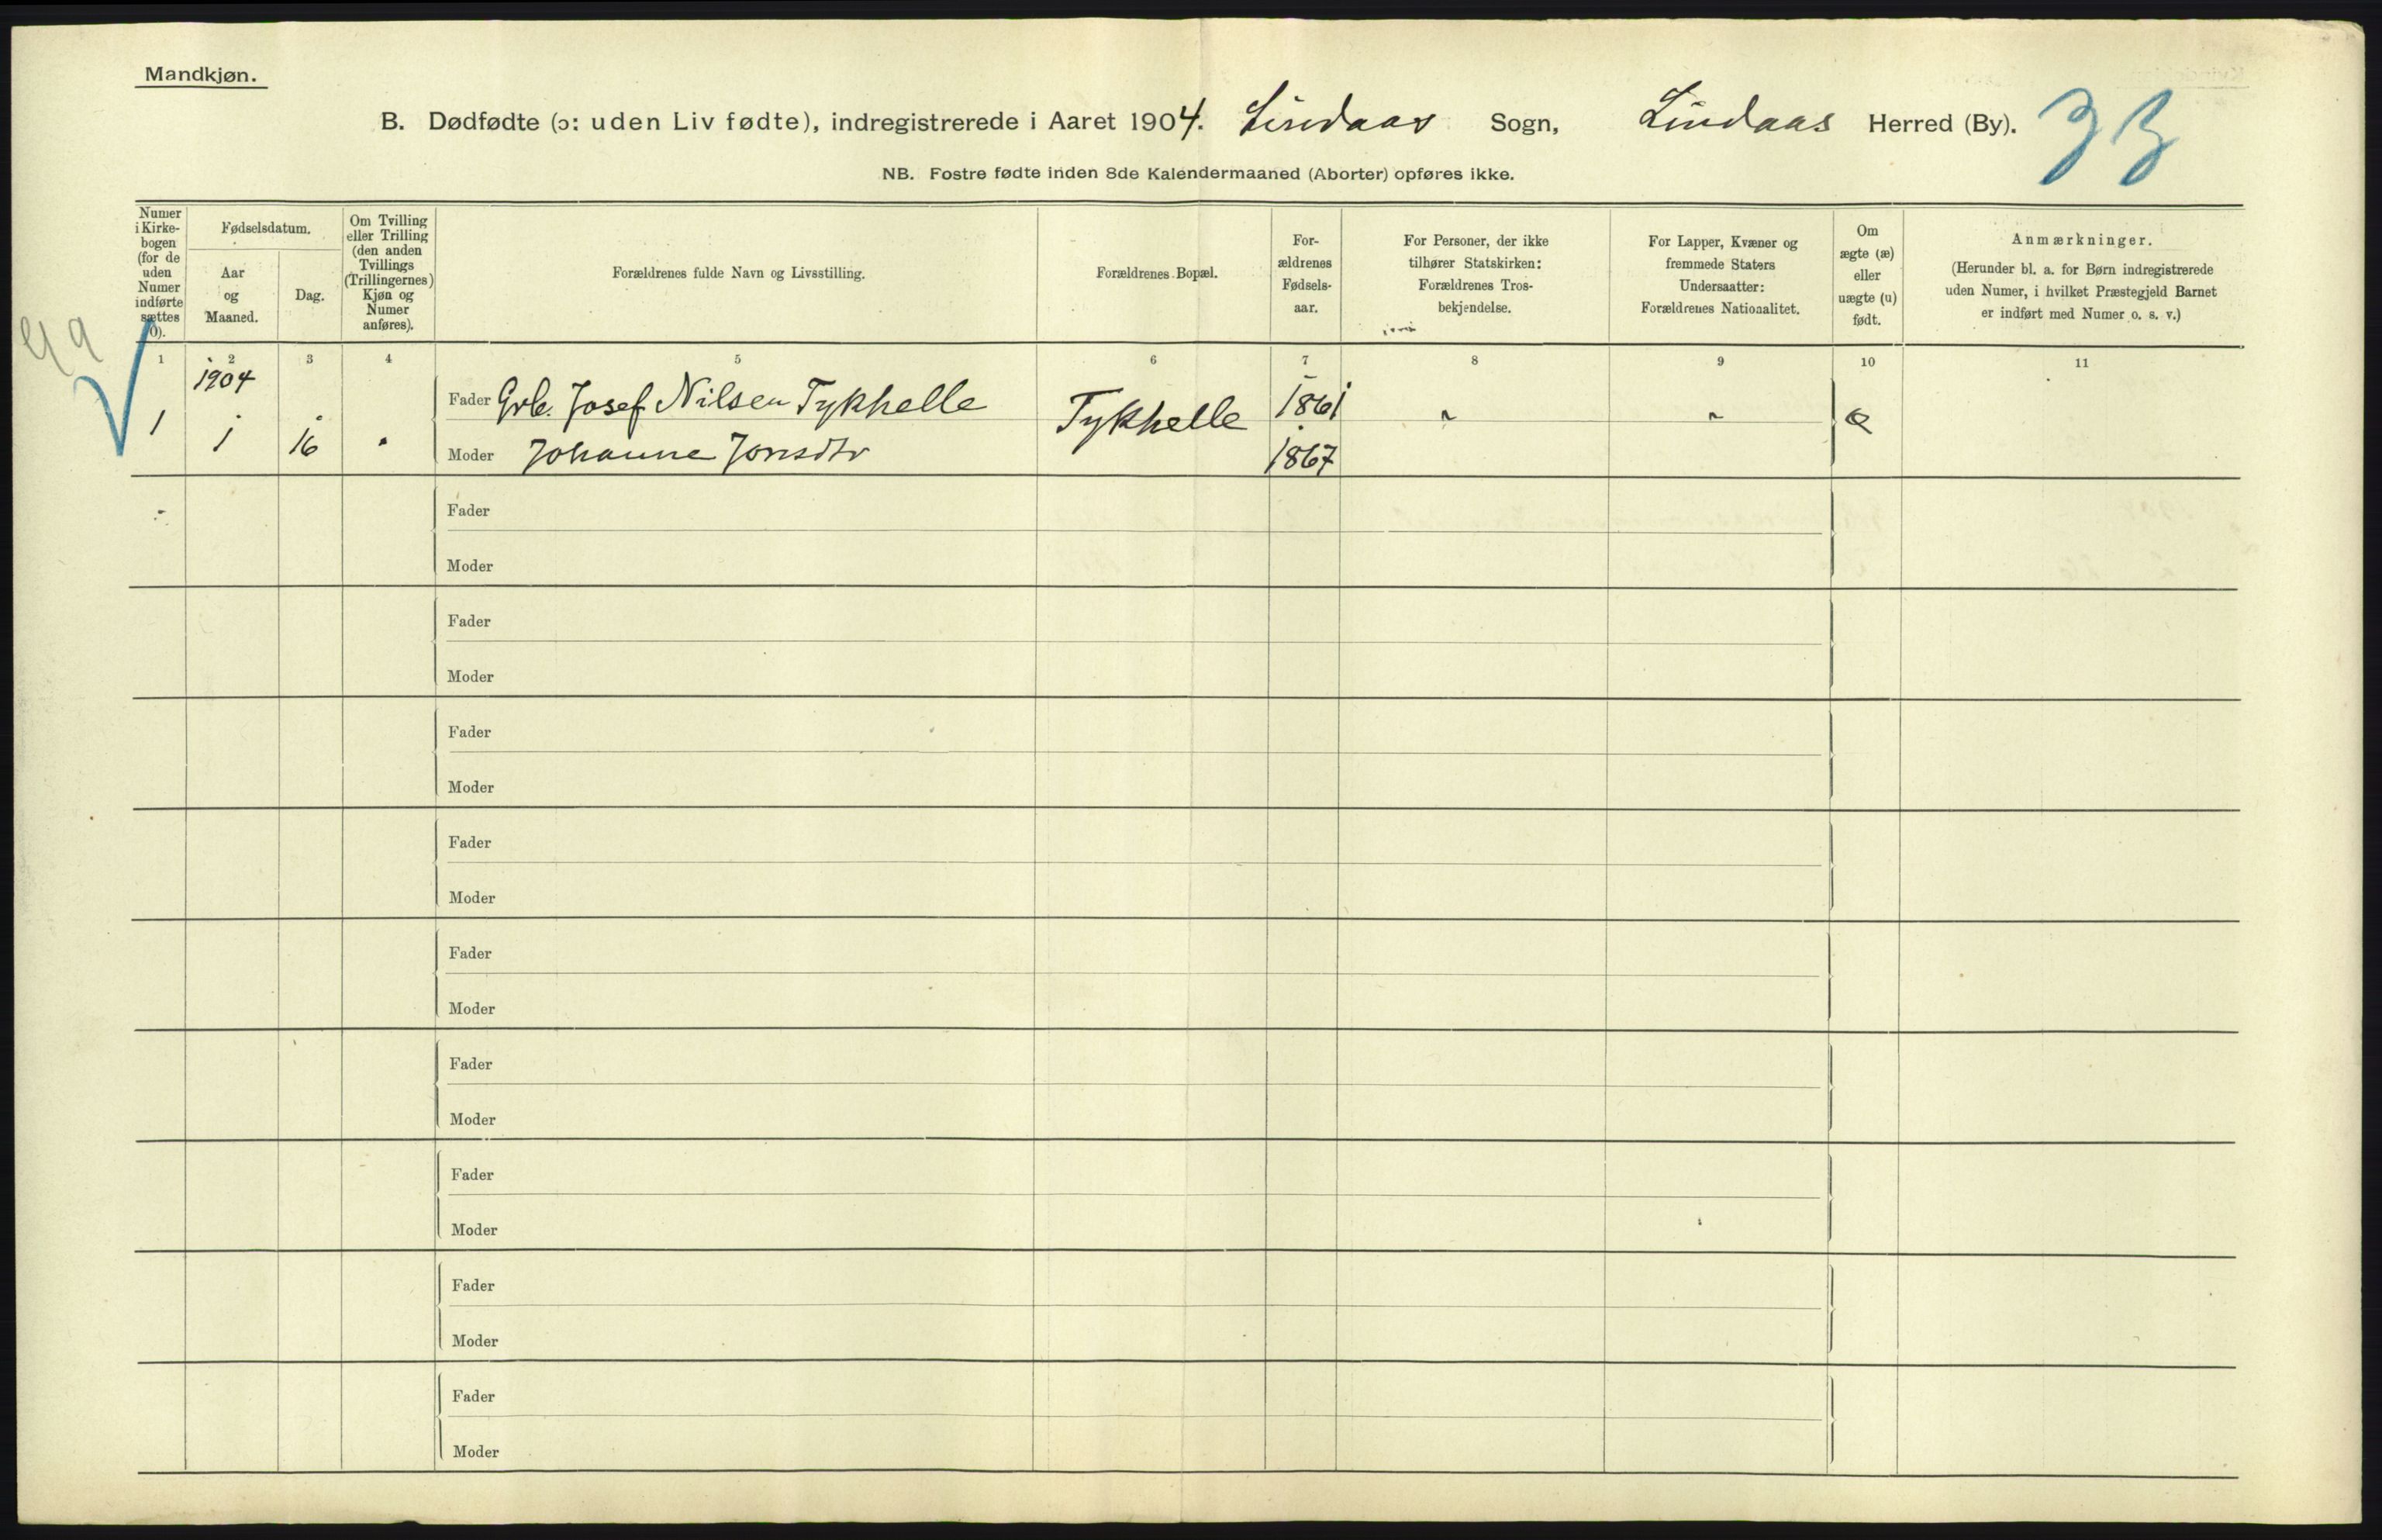 Mandkjøn.
B. Dødfødte (ɔ: uden Liv fødte), indregistrerede i Aaret 1904. Lindaas Sogn, Lindaas Herred (By).
NB. Fostre fødte inden 8de Kalendermaaned (Aborter) opføres ikke.
Numer i Kirke-bogen (for de uden Numer indførte sættes 0).
Fødselsdatum.
Aar og Maaned.
Dag.
Om Tvilling eller Trilling (den anden Tvillings (Trillingernes) Kjøn og Numer anføres).
Forældrenes fulde Navn og Livsstilling.
Forældrenes Bopæl.
For-ældrenes Fødsels-aar.
For Personer, der ikke tilhører Statskirken: Forældrenes Tros-bekjendelse.
For Lapper, Kvæner og fremmede Staters Undersaatter: Forældrenes Nationalitet.
Om ægte (æ) eller uægte (u) født.
Anmærkninger.
(Herunder bl. a. for Børn indregistrerede uden Numer, i hvilket Præstegjeld Barnet er indført med Numer o. s. v.)
1 2 3 4 5 6 7 8 9 10 11
1904
Fader Grb. Josef Nilsen Tykhelle Tykhelle 1861
1 1 16 Moder Johanne Jonsdtr 1867 æ
Fader
Moder
Fader
Moder
Fader
Moder
Fader
Moder
Fader
Moder
Fader
Moder
Fader
Moder
Fader
Moder
Fader
Moder